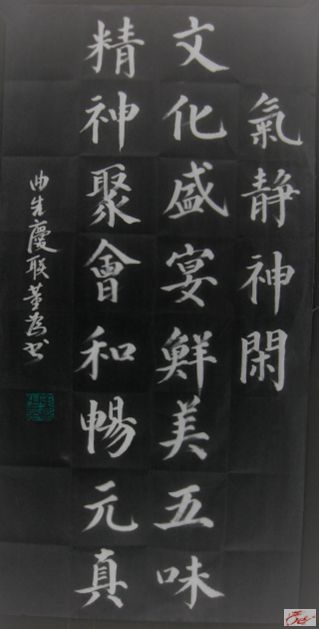 氣靜神閑
文化盛宴鮮美五味
精神聚會和暢元真
曲生慶联董為书